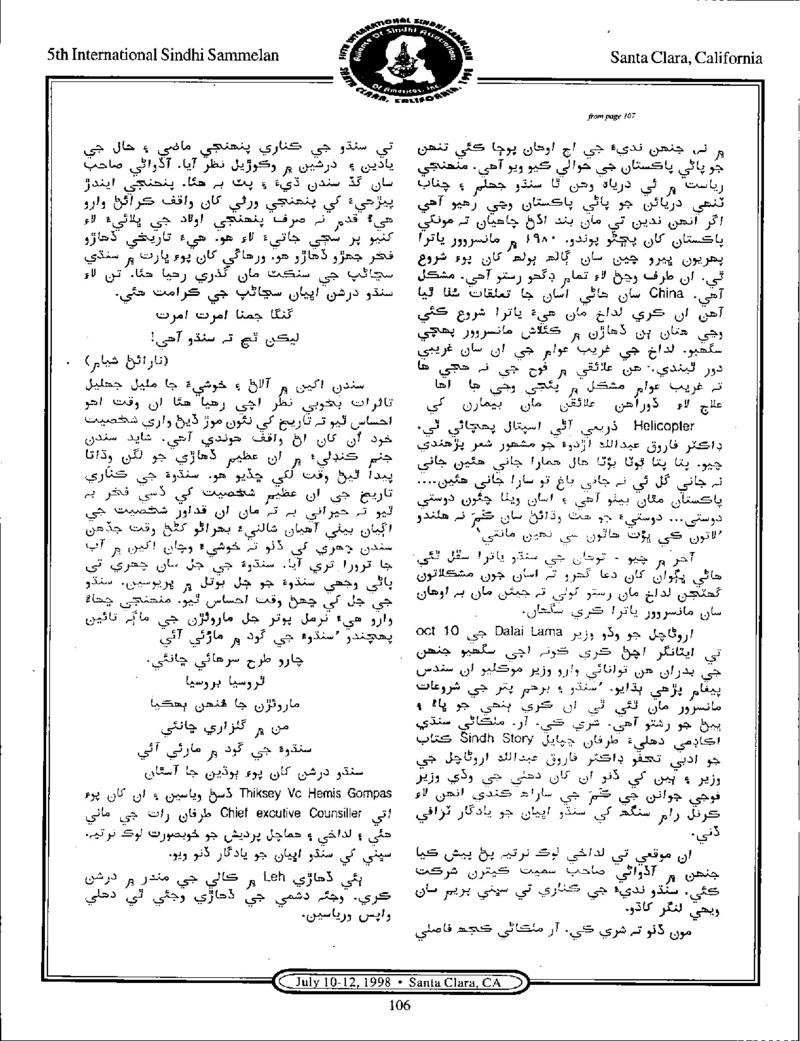 5th International Sindhi Sammelan
FIFTH INTERNATIONAL SINDHI SAMMELAN
Alliance Of Sindhi Associations
Of Americas, Inc.
SANTA CLARA, CALIFORNIA, 1998
Santa Clara, California
from page 107
۾ نہ، جنھن نديءَ جي اڄ اوهان پوڄا ڪئي تنھن
جو پاڻي پاڪستان جي حوالي ڪيو ويو آهي. منھنجي
رياست ۾ ٽي درياهہ وهن ٿا سنڌو جھلم ۽ چناب
ٽنھي دريائن جو پاڻي پاڪستان وڃي رهيو آهي
اگر انھن ندين تي مان بند اڏڻ چاهيان تہ مونکي
پاڪستان کان پڇڻو پوندو. ۱۹۸۰ ۾ مانسروور ياترا
پھريون ڀيرو چين سان ڳالھہ ٻولھہ کان پوءِ شروع
ٿي. ان طرف وڃڻ لاءِ تمام ڊگھو رستو آهي. مشڪل
آهي. China سان هاڻي اسان جا تعلقات سٺا ٿيا
آهن ان ڪري لداخ مان هيءَ ياترا شروع ڪئي
وڃي هتان ٻن ڏهاڙن ۾ ڪئلاش مانسروور پھچي
سگھبو. لداخ جي غريب عوام جي ان سان غريبي
دور ٿيندي. هن علائقي ۾ فوج جي نہ هجي ها
تہ غريب عوام مشڪل ۾ پئجي وڃي ها اها
علاج لاءِ ڏوراهن علائقن مان بيمارن کي
Helicopter ذريعي آڻي اسپتال پھچائي ٿي.
ڊاڪٽر فاروق عبداللہ اڙدوءَ جو مشھور شعر پڙهندي
چيو. پتا پتا ٻوٽا ٻوٽا حال همارا جاني هئين جاني
نہ جاني گل ئي نہ جاني باغ تو سارا جاني هئين....
پاڪستان مٿان بيٺو آهي ۽ اسان وينا چئون دوستي
دوستي... دوستيءَ جو هٿ وڌائڻ سان ڪم نہ هلندو
'لاتون ڪي ڀوت هاٿون سي نھين مانتي'
آخر ۾ چيو - توهان جي سنڌو ياترا سڦل ٿئي
هاڻي ڀڳوان کان دعا گھرو تہ اسان جون مشڪلاتون
گھٽجن لداخ مان رستو کولي تہ جيئن مان بہ اوهان
سان مانسروور ياترا ڪري سگھان.
اروڻاچل جو وڏو وزير Dalai Lama جي oct 10
تي ايٽانگر اچڻ ڪري ڪونہ اچي سگھيو جنھن
جي بدران هن توانائي وارو وزير موڪليو ان سندس
پيغام پڙهي ٻڌايو. 'سنڌو ۽ برهم پتر جي شروعات
مانسرور مان ٿئي ٿي ان ڪري ٻنھي جو ڀاءُ ۽
ڀيڻ جو رشتو آهي. شري ڪي. آر. ملڪاڻي سنڌي
اڪاڊمي دهليءَ طرفان ڇپايل Sindh Story ڪتاب
جو ادبي تحفو ڊاڪٽر فاروق عبداللہ اروڻاچل جي
وزير ۽ ٻين کي ڏنو ان کان دهلي جي وڏي وزير
فوجي جوانن جي ڪم جي ساراهہ ڪندي انھن لاءِ
ڪرنل رام سنگھہ کي سنڌو اڀيان جو يادگار ٽرافي
ڏني.
ان موقعي تي لداخي لوڪ نرتيہ پڻ پيش ڪيا
جنھن ۾ آڏواڻي صاحب سميت ڪيترن شرڪت
ڪئي. سنڌو نديءَ جي ڪناري تي سڀني پريم سان
ويھي لنگر کاڌو.
مون ڏٺو تہ شري ڪي. آر ملڪاڻي ڪجھہ فاصلي
تي سنڌو جي ڪناري پنھنجي ماضي ۽ حال جي
يادين ۽ درشين ۾ وڪوڙيل نظر آيا. آڏواڻي صاحب
سان گڏ سندن ڌيءَ ۽ پٽ بہ هئا. پنھنجي ايندڙ
پيڙهيءَ کي پنھنجي ورثي کان واقف ڪرائڻ وارو
هيءُ قدم نہ صرف پنھنجي اولاد جي ڀلائيءَ لاءِ
کنيو پر سڄي جاتيءَ لاءِ هو. هيءُ تاريخي ڏهاڙو
فخر جھڙو ڏهاڙو هو. ورهاڱي کان پوءِ ڀارت ۾ سنڌي
سڃاڻپ جي سنڪٽ مان گذري رهيا هئا. تن لاءِ
سنڌو درشن اڀيان سڃاڻپ جي ڪرامت هئي.
گنگا جمنا امرت امرت
ليڪن ٿڃ تہ سنڌو آهي!
(نارائڻ شيام)
سندن اکين ۾ آلاڻ ۽ خوشيءَ جا مليل جھليل
تاثرات بخوبي نظر اچي رهيا هئا ان وقت اهو
احساس ٿيو تہ تاريخ کي نئون موڙ ڏيڻ واري شخصيت
خود اُن کان اڻ واقف هوندي آهي. شايد سندن
جنم ڪنڊليءَ ۾ ان عظيم ڏهاڙي جو لڳن وڌاتا
پيدا ٿيڻ وقت لکي ڇڏيو هو. سنڌوءَ جي ڪناري
تاريخ جي ان عظيم شخصيت کي ڏسي فخر بہ
ٿيو تہ حيراني بہ تہ مان ان قداور شخصيت جي
اڳيان بيٺي آهيان شالنيءَ ٻھراڻو کڻڻ وقت جڏهن
سندن چھري کي ڏٺو تہ خوشيءَ وچان اکين ۾ آب
جا ترورا تري آيا. سنڌوءَ جي جل سان چھري تي
پاڻي وجھي سنڌوءَ جو جل بوتل ۾ ڀريوسين. سنڌو
جي جل کي ڇھڻ وقت احساس ٿيو. منھنجي ڇھاءَ
وارو هيءُ نرمل پوتر جل ماروئڙن جي ماڳہ تائين
پھچندو 'سنڌوءَ جي گود ۾ ماڙئي آئي
چارو طرح سرهائي ڇانئي.
ٿروسيا بروسيا
ماروئڙن جا ڦنھن ٻھڪيا
من ۾ گلزاري ڇانئي
سنڌوءَ جي گود ۾ مارئي آئي
سنڌو درشن کان پوءِ ٻوڌين جا آستان
Thiksey Vc Hemis Gompas ڏسڻ وياسين ۽ ان کان پوءِ
اتي Chief excutive Counsiller طرفان رات جي ماني
هئي ۽ لداخي ۽ هماچل پرديش جو خوبصورت لوڪ نرتيہ.
سڀني کي سنڌو اڀيان جو يادگار ڏنو ويو.
ٻئي ڏهاڙي Leh ۾ ڪالي جي مندر ۾ درشن
ڪري. وجئہ دشمي جي ڏهاڙي وڃئي ٿي دهلي
واپس ورياسين.
July 10-12, 1998 • Santa Clara, CA
106